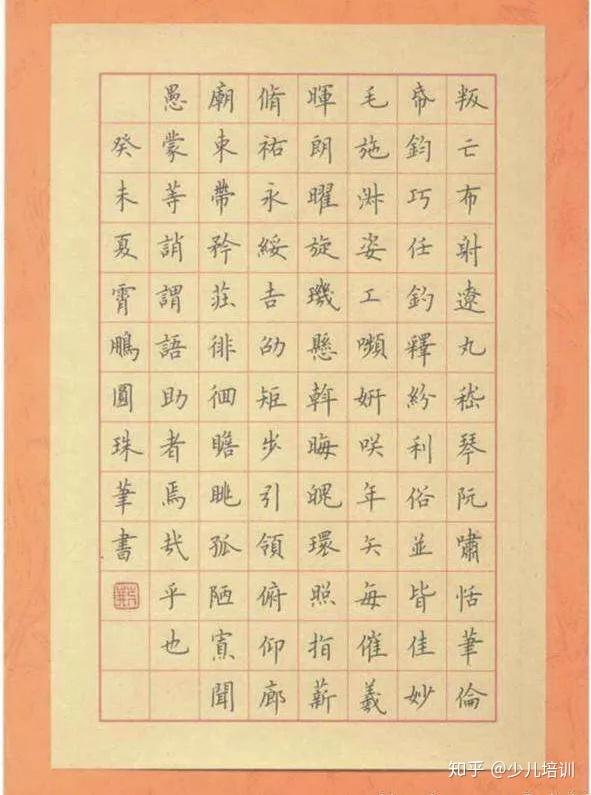 叛亡布射遼丸嵇琴阮嘯恬筆倫
帋鈞巧任釣釋紛利俗並皆佳妙
毛施淑姿工嚬妍咲年矢每催羲
暉朗曜旋璣懸斡晦魄環照指薪
脩祐永綏吉劭矩步引領俯仰廊
廟束帶矜莊徘徊瞻眺孤陋寡聞
愚蒙等誚謂語助者焉哉乎也
癸未夏霄鵬圓珠筆書
知乎 @少儿培训